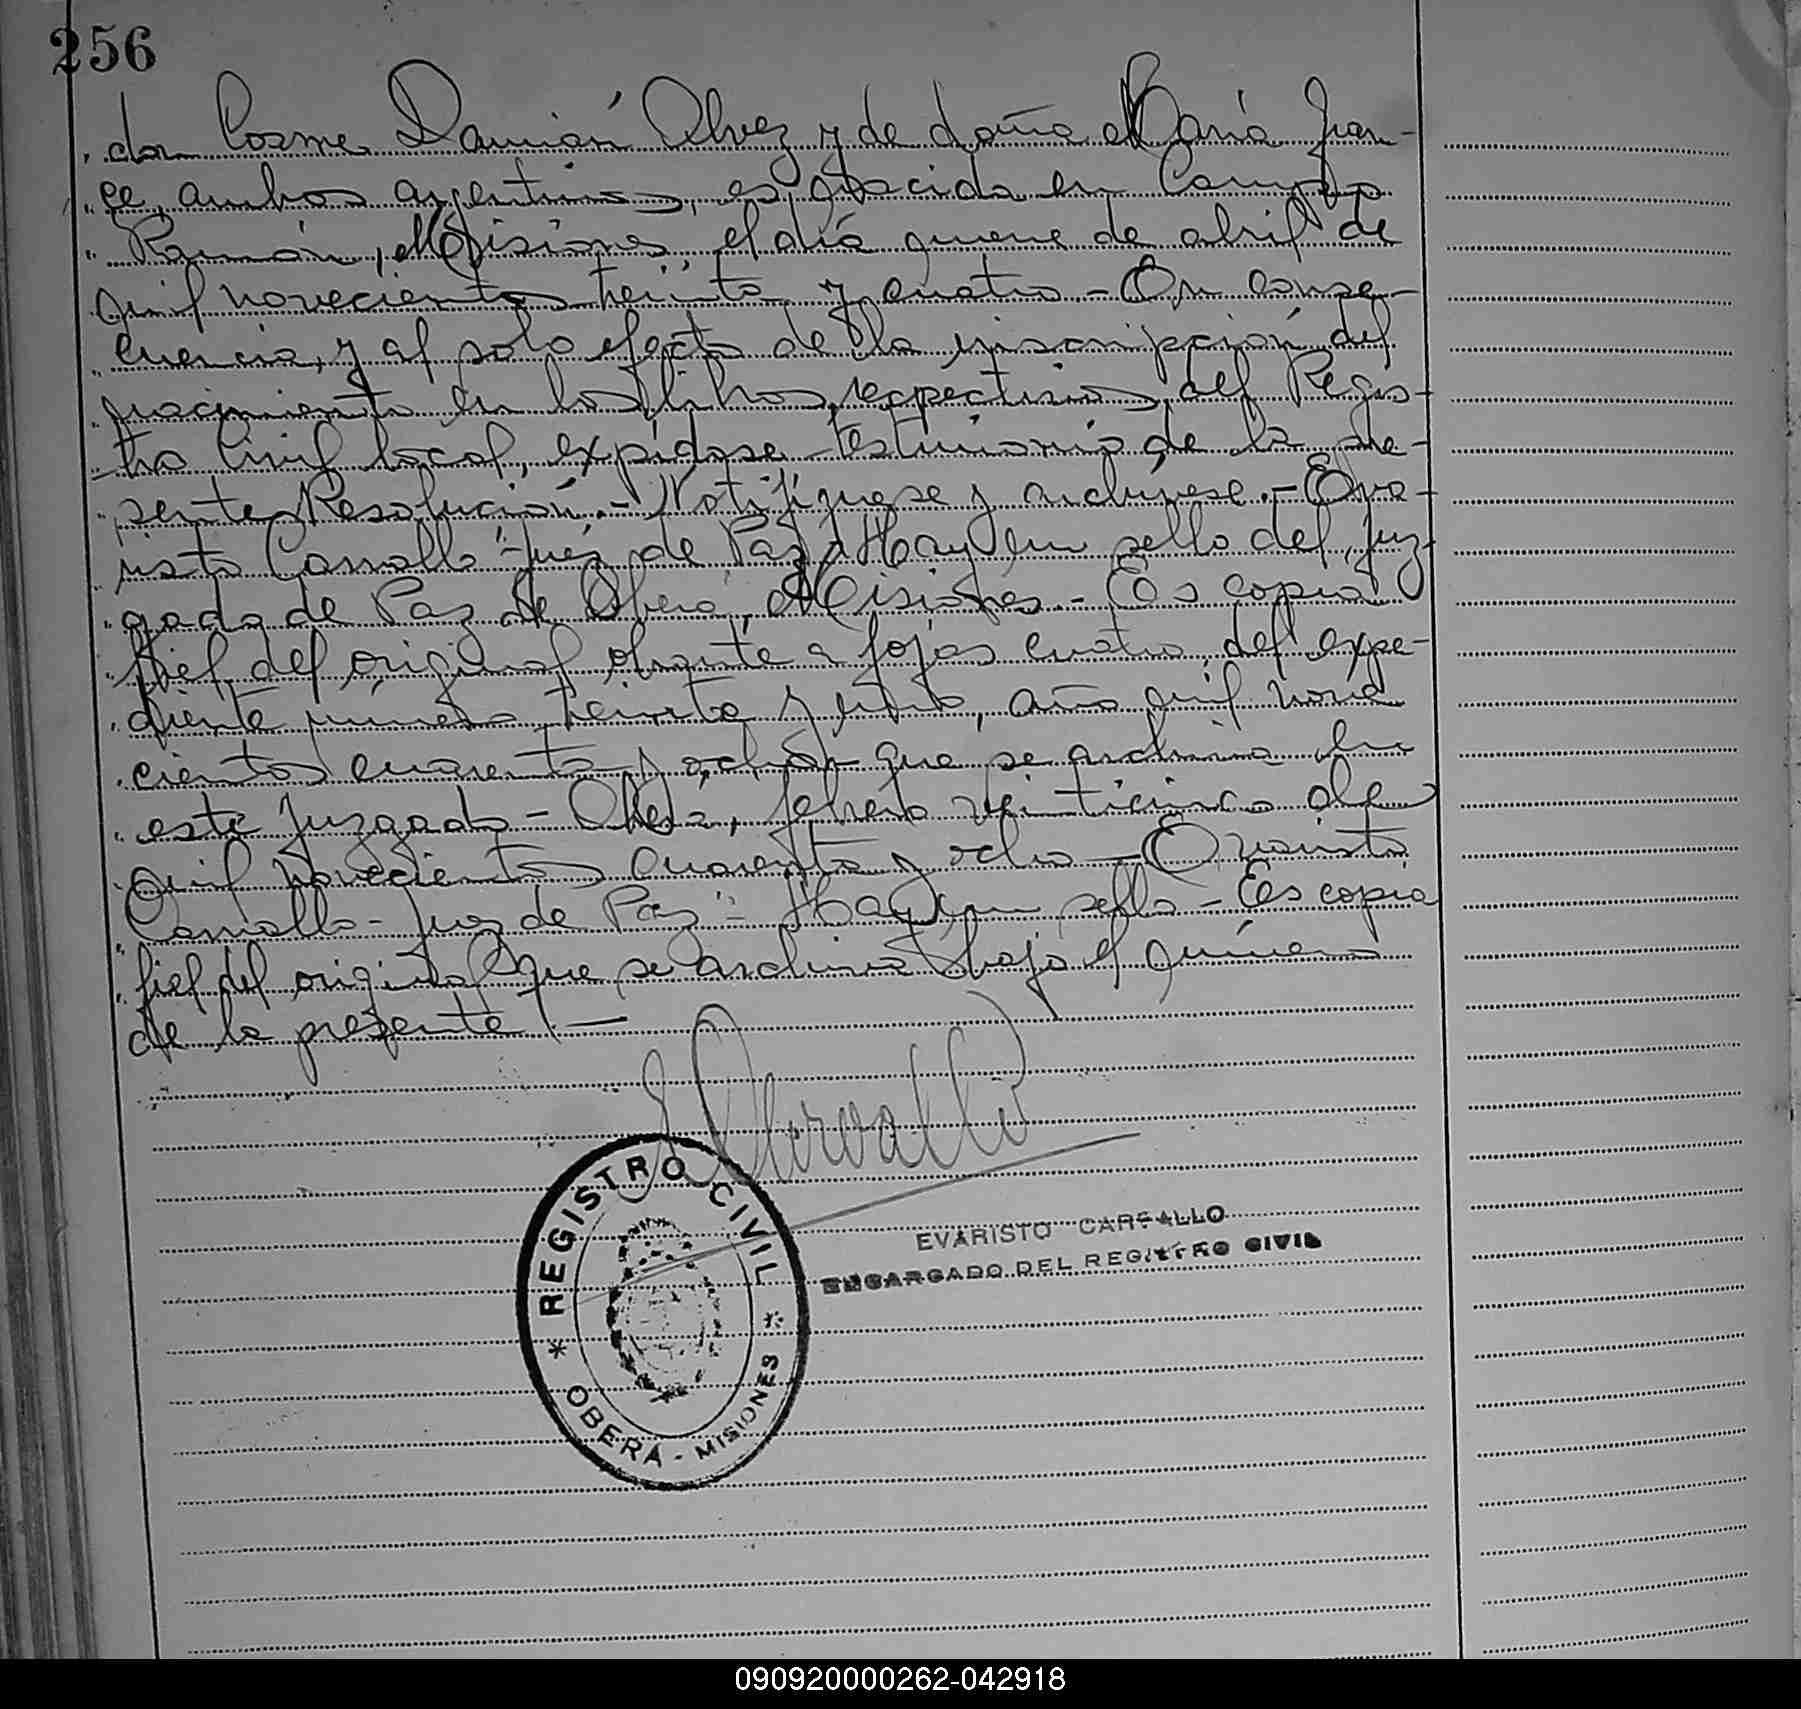 256
don Cosme Damián Alvez y de doña María Fran-
ce, ambos argentinos, es nacida en Campo
Ramón, Misiones, el día nueve de abril de
mil novecientos treinta y cuatro - En conse-
cuencia, y al solo efecto de la inscripción del
nacimiento en los libros respectivos del Regis-
tro Civil local, expídase testimonio de la pre-
sente Resolución.- Notifíquese y archívese.- Eva-
risto Carvallo - Juez de Paz - Hay un sello del Juz-
gado de Paz de Oberá, Misiones.- Es copia
fiel del original obrante a fojas cuatro, del expe-
diente número treinta y , año mil nove
cientos cuarenta y ocho que se archiva en
este Juzgado - Oberá, febrero veinticinco de
mil novecientos cuarenta y ocho - Evaristo
Carvallo - Juez de Paz - Hay un sello - Es copia
fiel del original que se archiva bajo el número
de la presente. —
E Carvallo
REGISTRO CIVIL
* OBERÁ - MISIONES *
EVARISTO CARVALLO
ENCARGADO DEL REGISTRO CIVIL
090920000262-042918